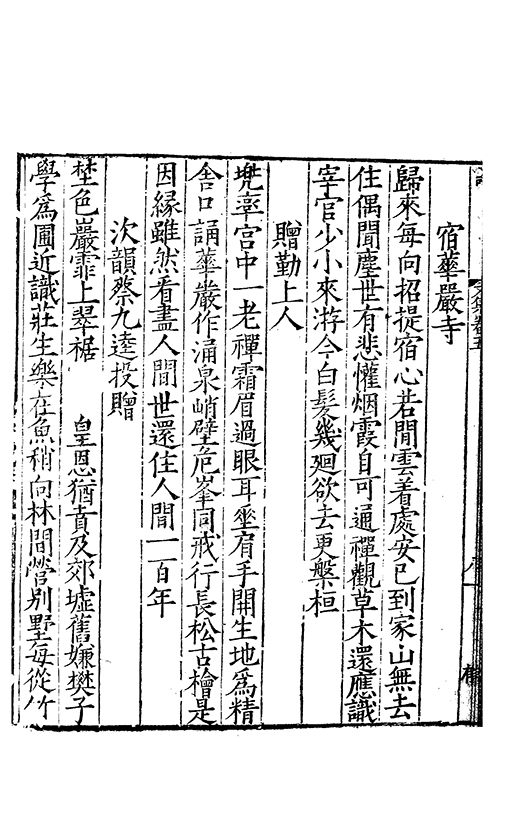 宿華嚴寺
歸來每向招提宿心若閒雲着處安已到家山無去
住偶聞塵世有悲懽烟霞自可通禪觀草木還應識
宰官少小來游今白髮幾廻欲去更槃桓
贈勤上人
兠率宮中一老禪霜眉過眼耳垂肩手開生地爲精
舍口誦華嚴作涌泉峭壁危峯同戒行長松古檜是
因緣雖然看盡人間世還住人間一百年
次韻蔡九逵投贈
埜色嚴霏上翠裾 皇恩猶責及郊墟舊嫌樊子
學爲圃近識莊生樂在魚稍向林間營别墅每從竹